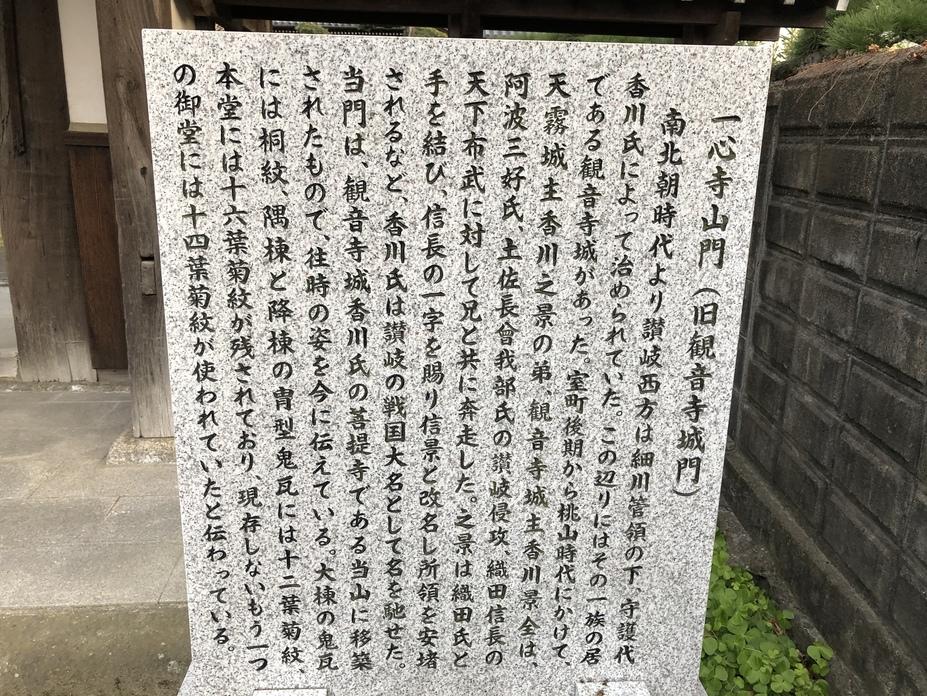 一心寺山門（旧観音寺城門）
南北朝時代より讃岐西方は細川管領の下、守護代
香川氏によって治められていた。この辺りにはその一族の居
である観音寺城があった。室町後期から桃山時代にかけて、
天霧城主香川之景の弟、観音寺城主香川景全は、
阿波三好氏、土佐長曾我部氏の讃岐侵攻、織田信長の
天下布武に対して兄と共に奔走した。之景は織田氏と
手を結び、信長の一字を賜り信景と改名し所領を安堵
されるなど、香川氏は讃岐の戦国大名として名を馳せた。
当門は、観音寺城香川氏の菩提寺である当山に移築
されたもので、往時の姿を今に伝えている。大棟の鬼瓦
には桐紋、隅棟と降棟の冑型鬼瓦には十二葉菊紋、
本堂には十六葉菊紋が残されており、現存しないもう一つ
の御堂には十四葉菊紋が使われていたと伝わっている。